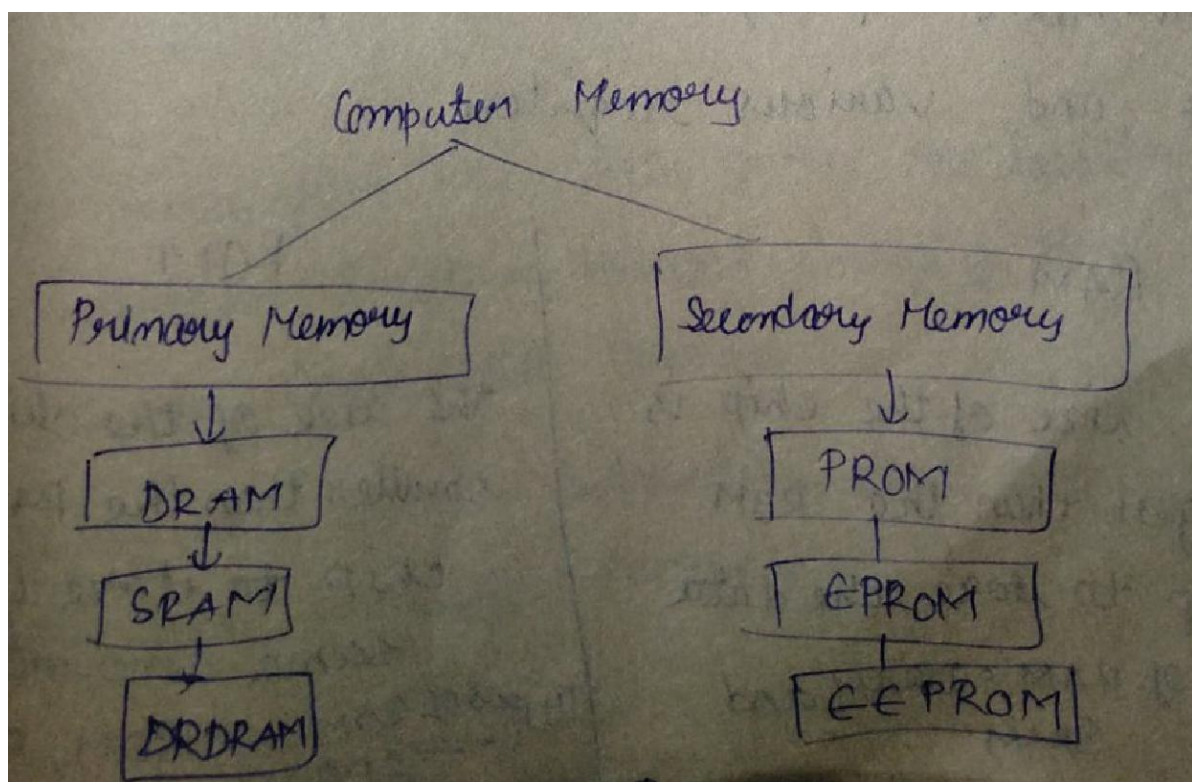 Computer Memory
Primary Memory
Secondary Memory
DRAM
PROM
SRAM
EPROM
DRDRAM
EEPROM